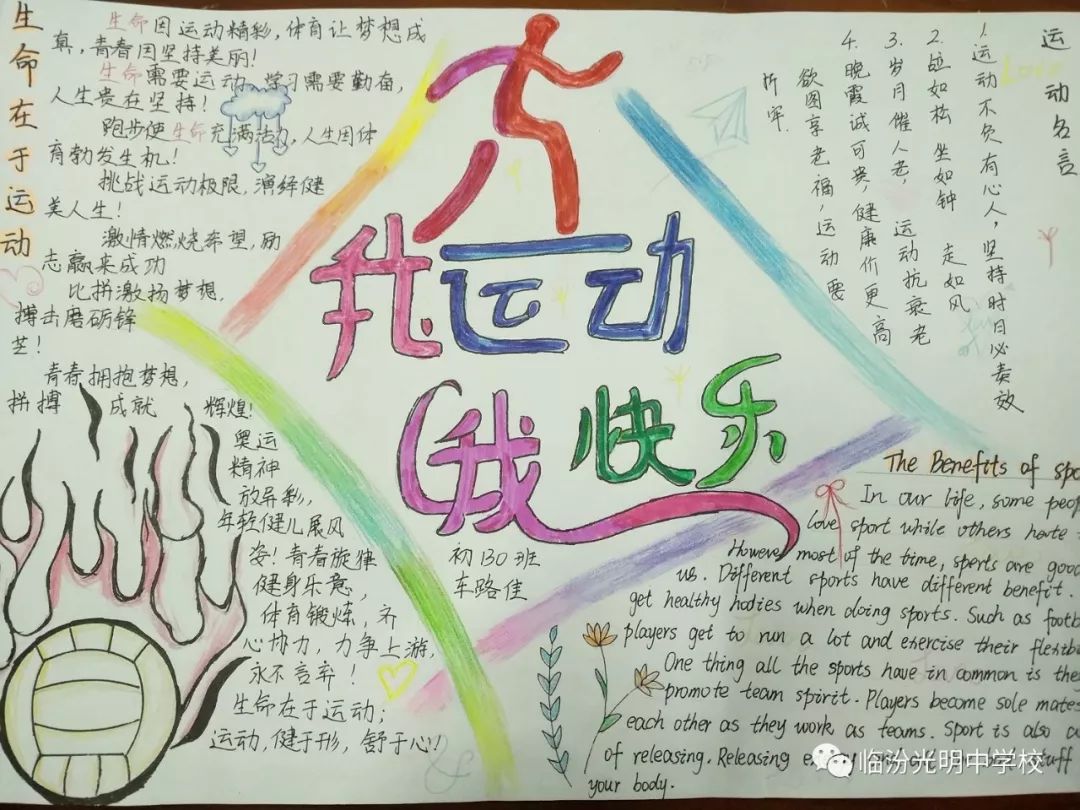 生命在于运动
生命因运动精彩，体育让梦想成
真，青春因坚持美丽！
生命需要运动，学习需要勤奋，
人生贵在坚持！
跑步使生命充满活力，人生因体
育勃发生机！
挑战运动极限，演绎健
美人生！
激情燃烧希望，励
志赢来成功
比拼激扬梦想，
搏击磨砺锋
芒！
青春拥抱梦想，
拼搏 成就 辉煌！
奥运
精神
放异彩，
年轻健儿展风
姿！青春旋律
健身乐意，
体育锻炼，齐
心协力，力争上游，
永不言弃！
生命在于运动；
运动，健于形，舒于心！
我运动
我快乐
初130班
车路佳
运动名言
1.运动不负有心人，坚持时日必奏效
2.站如松 坐如钟 走如风
3.岁月催人老，运动抗衰老
4.晚霞诚可贵，健康价更高
欲图享老福，运动要
抓牢.
The Benefits of spo
In our life, some peop
love sport while others hate
However most of the time, sperts are good
us. Different sports have different benefit.
get healthy hodies when doing sports. Such as footb
players get to run a lot and exercise their flexib
One thing all the sports have in common is the
promote team spirit. Players become sole mates
each other as they work as teams. Sport is also a
of releasing. Releasing stuff
your body.
临汾光明中学校